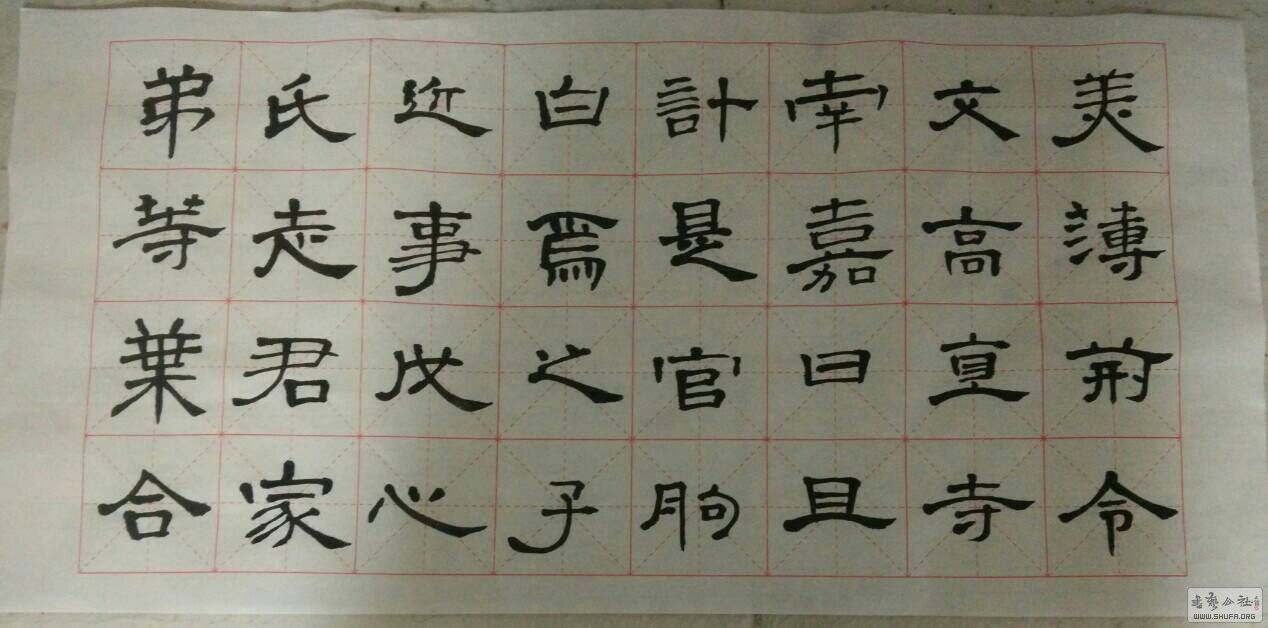 美溥荊令
文高宣寺
南嘉曰且
計是官朐
白焉之子
近事戊心
氏走君家
弟等葉合
书艺公社
WWW.SHUFA.ORG